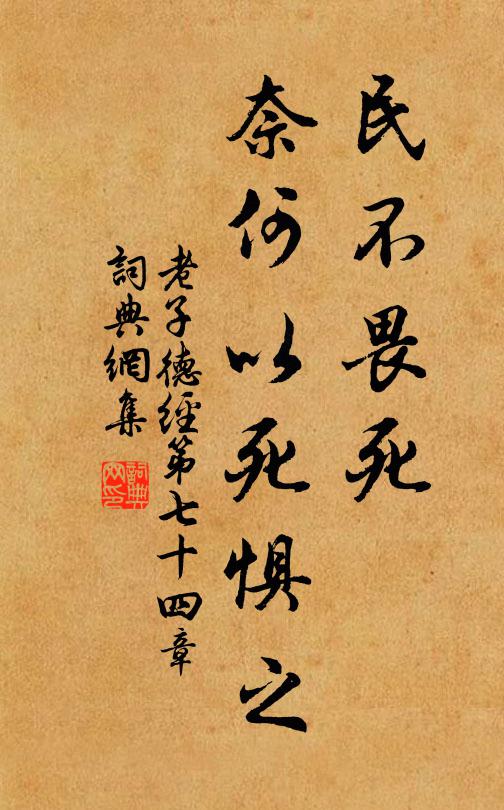 民不畏死
奈何以死惧之
老子德經第七十四章
詞典網集
詞典網印